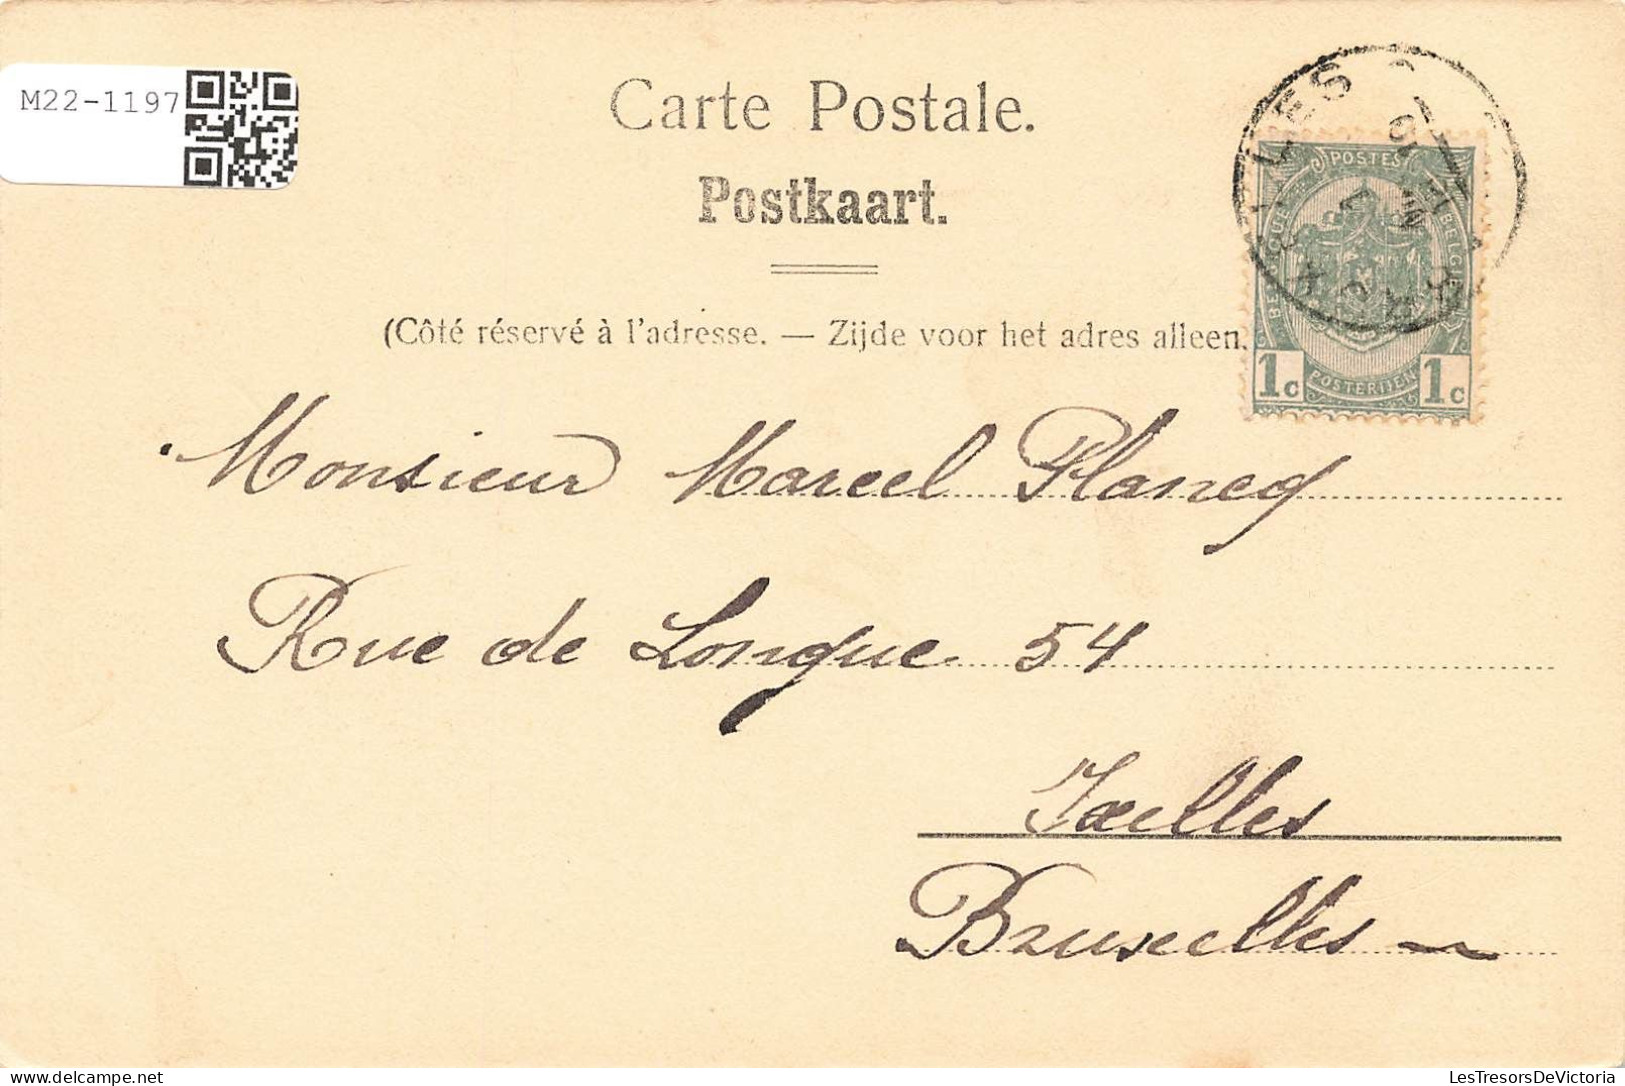 M22-1197
Carte Postale.
Postkaart.
(Côté réservé à l'adresse. — Zijde voor het adres alleen.
POSTES
BELGIQUE
POSTERIJEN
1c 1c
Monsieur Marcel Plancq
Rue de Longue 54
Ixelles
Bruxelles
LesTresorsDeVictoria